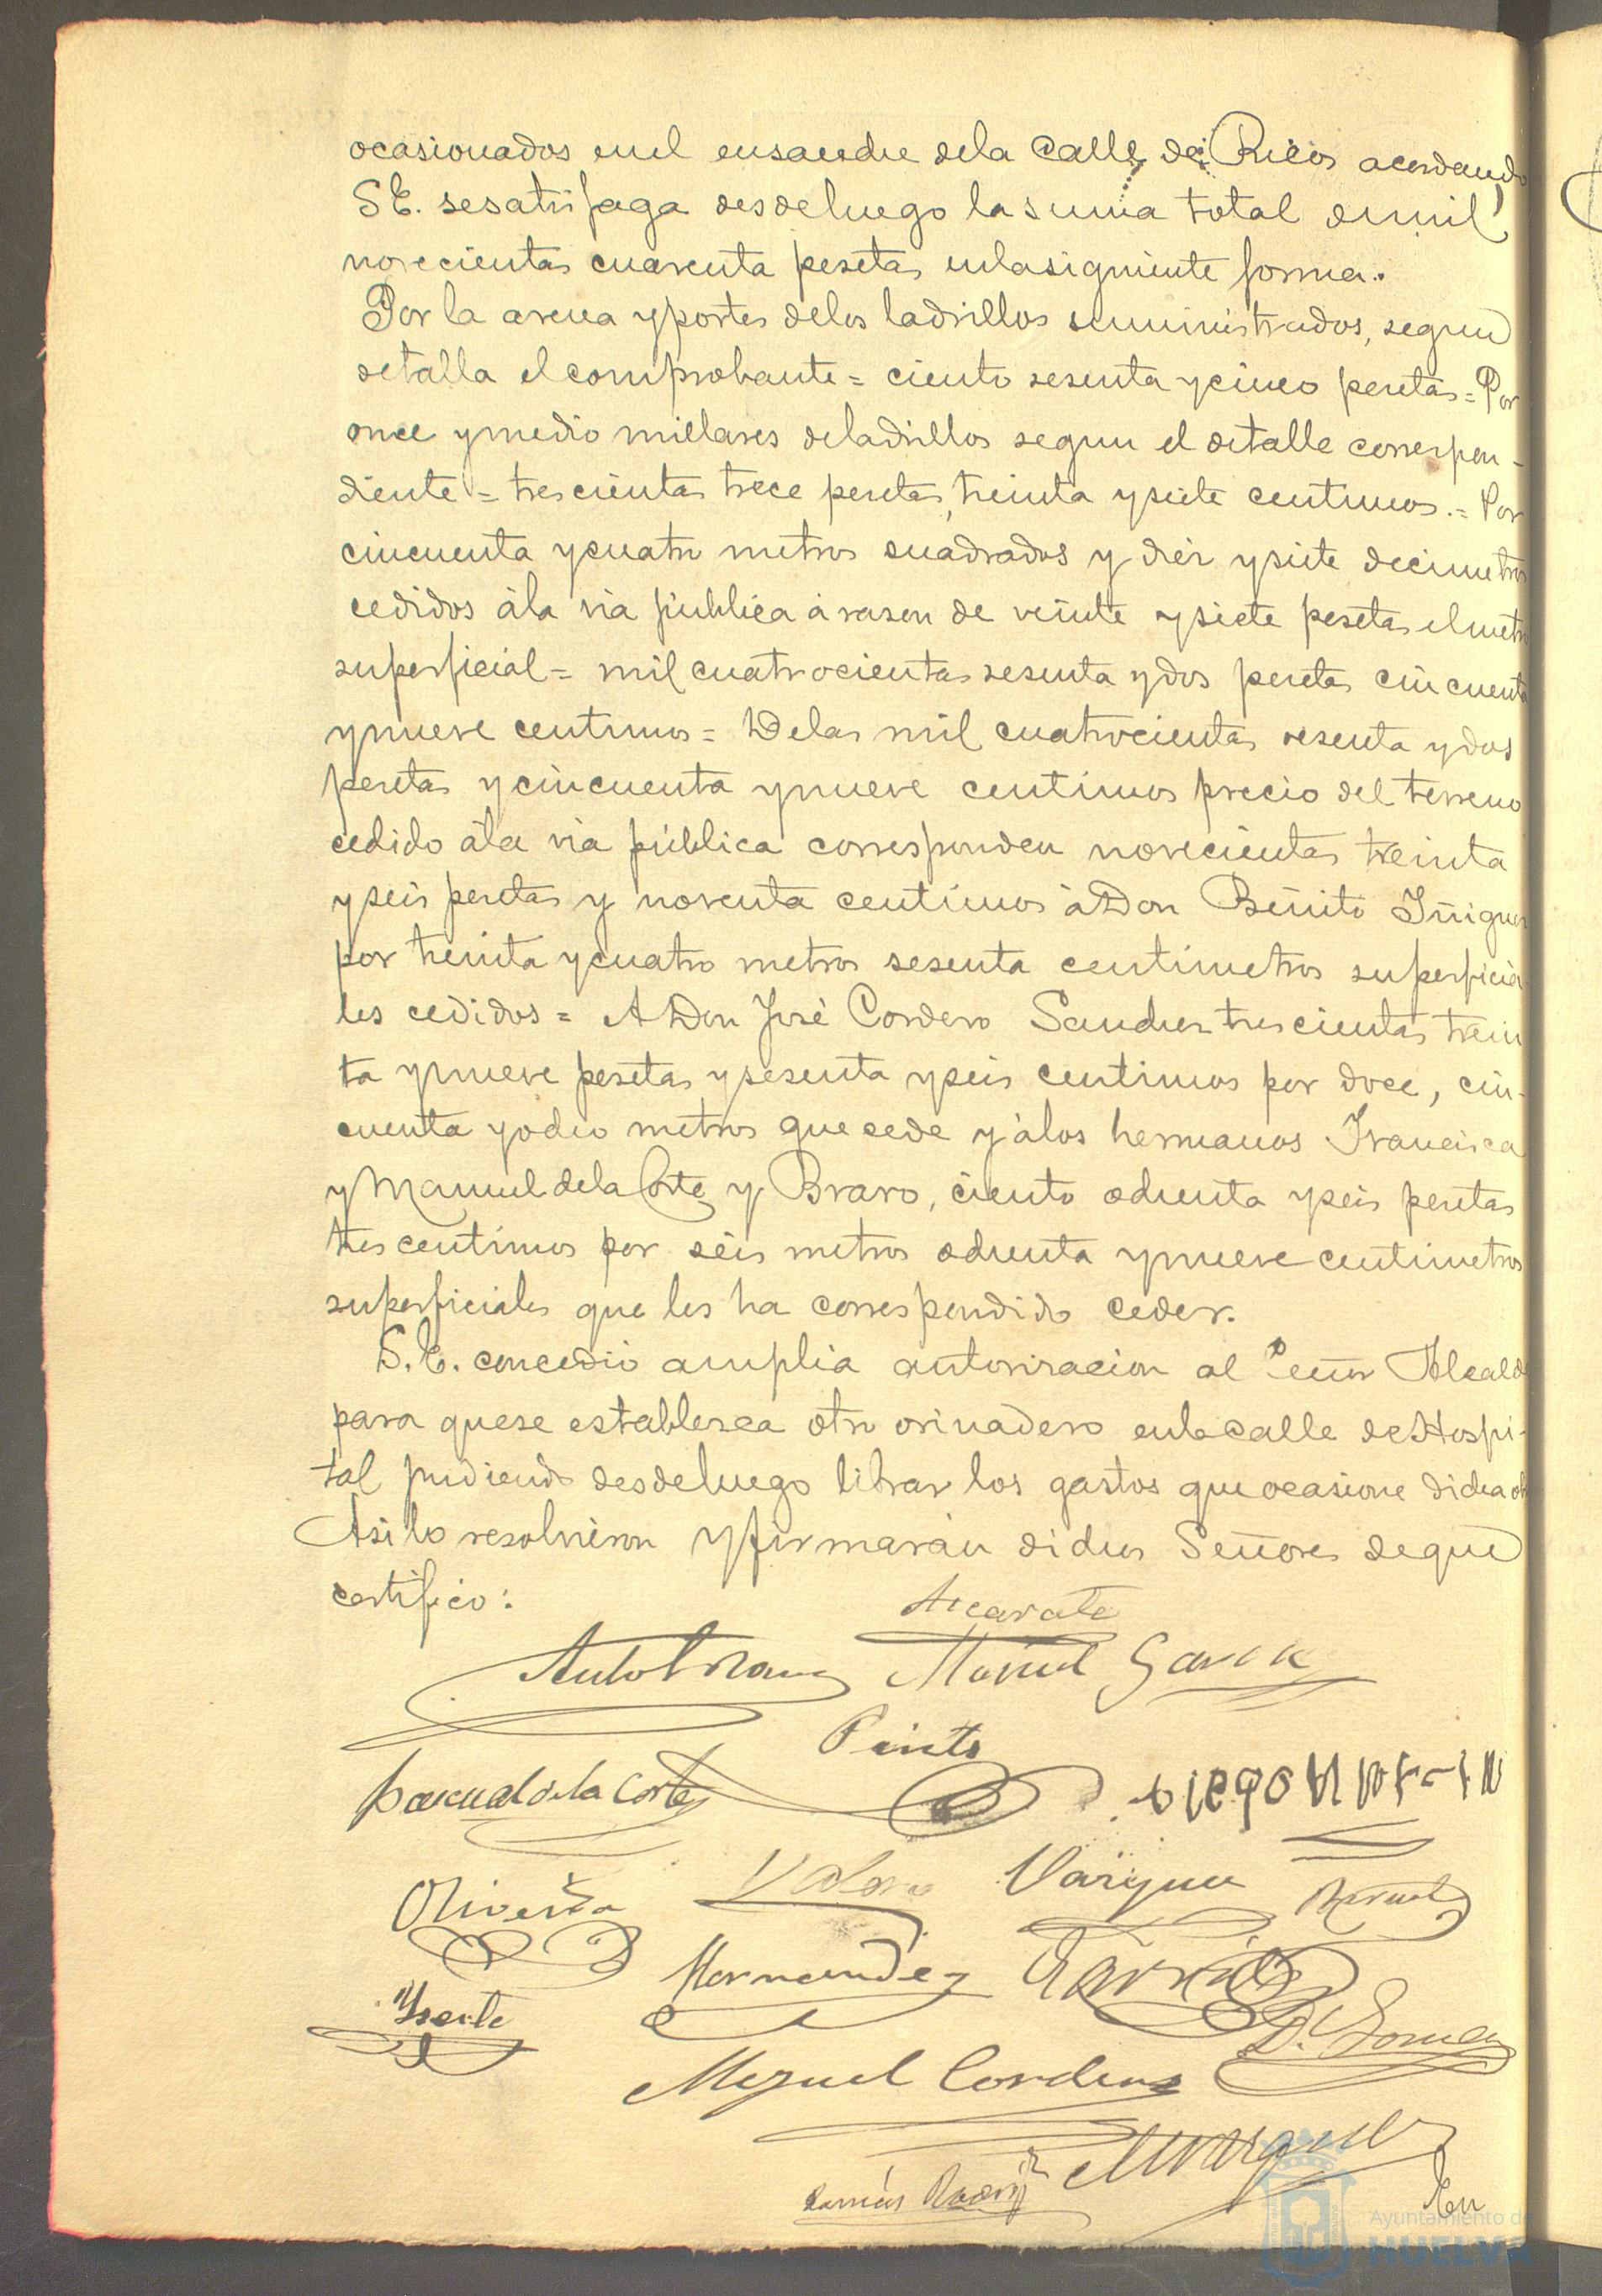 ocasionados enel ensanche dela Calle de Ricos acordando
S E. sesatisfaga desdeluego la suma total demil
novecientas cuarenta pesetas enlasiguiente forma.
Por la arena yportes delos ladrillos suministrados, segun
detalla el comprobante = ciento sesenta ycinco pesetas = Por
once ymedio millares deladrillos segun el detalle correspon-
diente = trescientas trece pesetas, treinta ysiete centimos. = Por
cincuenta ycuatro metros cuadrados y diez ysiete decimetros
cedidos ála via pública á rason de veinte ysiete pesetas elmetro
superficial = mil cuatrocientas sesenta ydos pesetas cincuenta
ynueve centimos = Delas mil cuatrocientas sesenta ydos
pesetas ycincuenta ynueve centimos precio del terreno
cedido ála via pública corresponden novecientas treinta
yseis pesetas y noventa centimos à Don Benito Iñiguez
por treinta ycuatro metros sesenta centimetros superficia
les cedidos = A Don José Cordero Sanchez trescientas trein
ta ynueve pesetas ysesenta yseis centimos por doce, cin-
cuenta yocho metros que cede y álos hermanos Francisca
y Manuel dela Corte y Bravo, ciento ochenta yseis pesetas
tres centimos por seis metros ochenta ynueve centimetros
superficiales que les ha correspondido ceder.
S. E. concedió amplia autorizacion al Señor Alcalde
para quese establezca otro orinadero enla calle deHospi-
tal pudiendo desdeluego librar los gastos queocasione dicha ob
Asi lo resolvieron y firmarán dichos Señores deque
certifico:
Azcarate
Manuel Garcia
Pinto
Pascual de la Corte
Oliveira Valero Vazquez
Hernandez Garcia
Ysente
D. Gomez
Miguel Cordero
Marquez
En
Ayuntamiento de
HUELVA